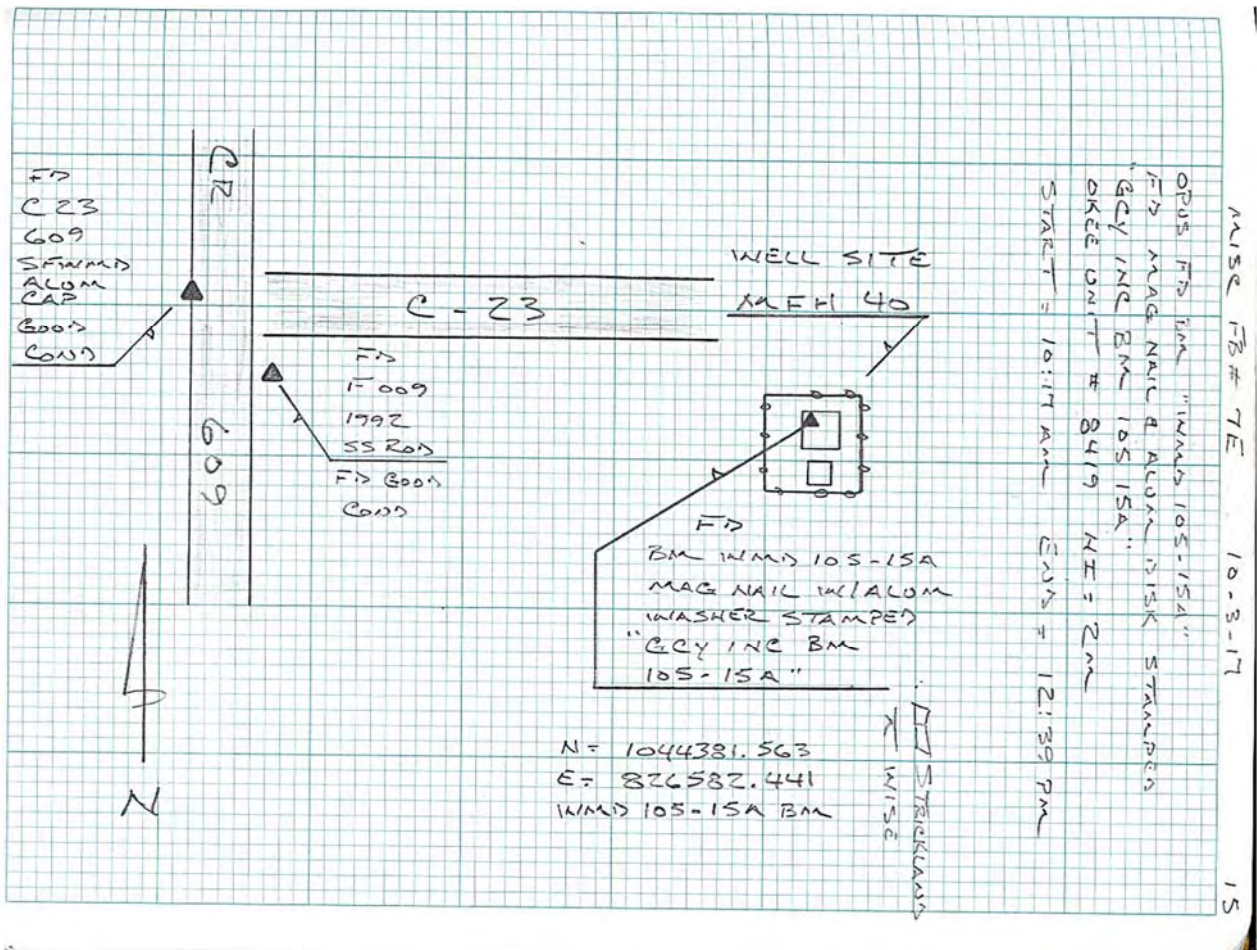 MISC FB# 7E 10-3-17 15
OPUS FD BM "WMD 105-15A"
FD MAG NAIL & ALUM DISK STAMPED
"GCY INC BM 105 15A".
OKEE UNIT # 8419 HI = 2m
START = 10:17 AM END = 12:39 PM
STRICKLAND
WISE
FD
C 23
609
SFWMD
ALUM
CAP
GOOD
COND
CR
609
C-23
FD
F 009
1992
SS ROD
FD GOOD
COND
WELL SITE
MFH 40
FD
BM WMD 105-15A
MAG NAIL W/ALUM
WASHER STAMPED
"GCY INC BM
105-15A"
N= 1044381.563
E= 826582.441
WMD 105-15A BM
N